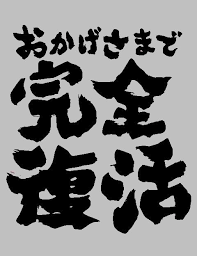 おかげさまで
完全
復活